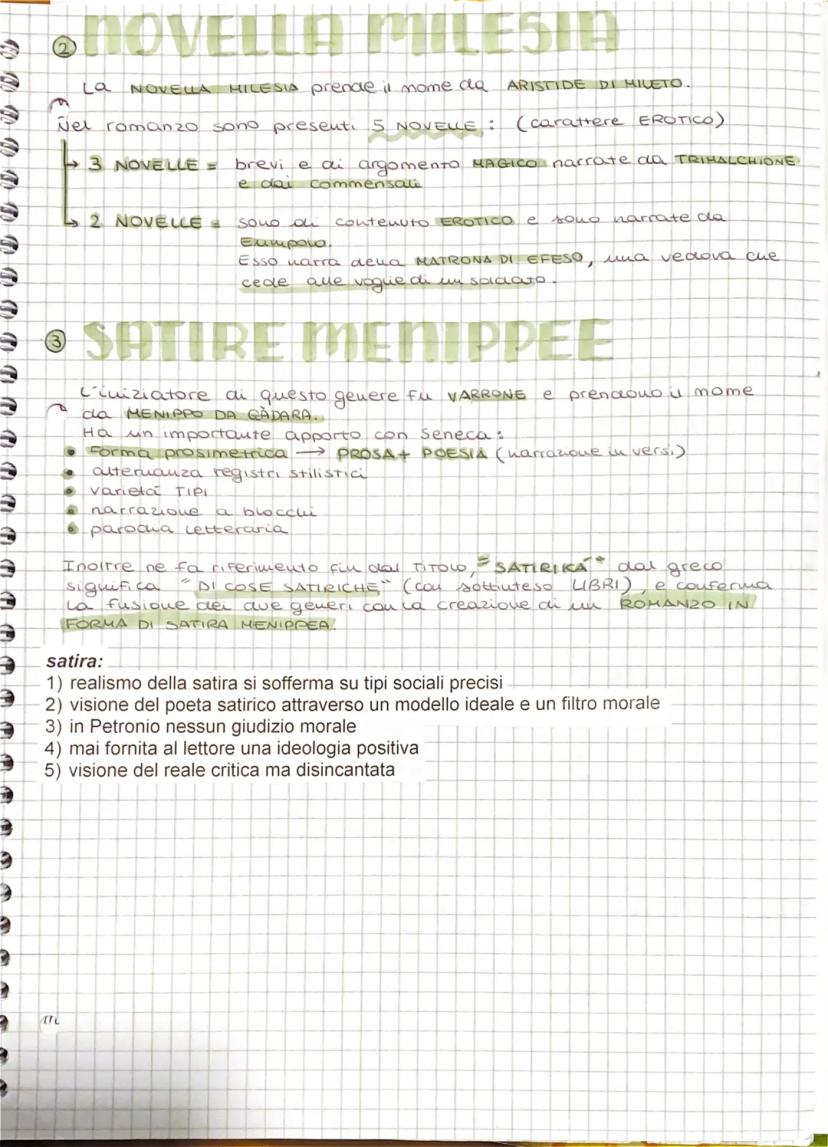 ② NOVELLA MILESIA
La NOVELLA MILESIA prende il nome da ARISTIDE DI MILETO.
Nel romanzo sono presenti 5 NOVELLE : (carattere EROTICO)
↳ 3 NOVELLE = brevi e di argomento MAGICO narrate da TRIMALCHIONE
e dai commensali
↳ 2 NOVELLE = sono di contenuto EROTICO e sono narrate da
Eumpolo.
Esso narra della MATRONA DI EFESO, una vedova che
cede alle voglie di un soldato.
③ SATIRE MENIPPEE
L'iniziatore di questo genere fu VARRONE e prendono il nome
da MENIPPO DA GÀDARA.
Ha un importante apporto con Seneca:
• forma prosimetrica → PROSA + POESIA (narrazione in versi)
• alternanza registri stilistici
• varietà TIPI
• narrazione a blocchi
• parodia letteraria
Inoltre ne fa riferimento fin dal TITOLO, "SATIRIKA" dal greco
significa "DI COSE SATIRICHE" (con sottinteso LIBRI), e conferma
la fusione dei due generi con la creazione di un ROMANZO IN
FORMA DI SATIRA MENIPPEA.
satira:
1) realismo della satira si sofferma su tipi sociali precisi
2) visione del poeta satirico attraverso un modello ideale e un filtro morale
3) in Petronio nessun giudizio morale
4) mai fornita al lettore una ideologia positiva
5) visione del reale critica ma disincantata